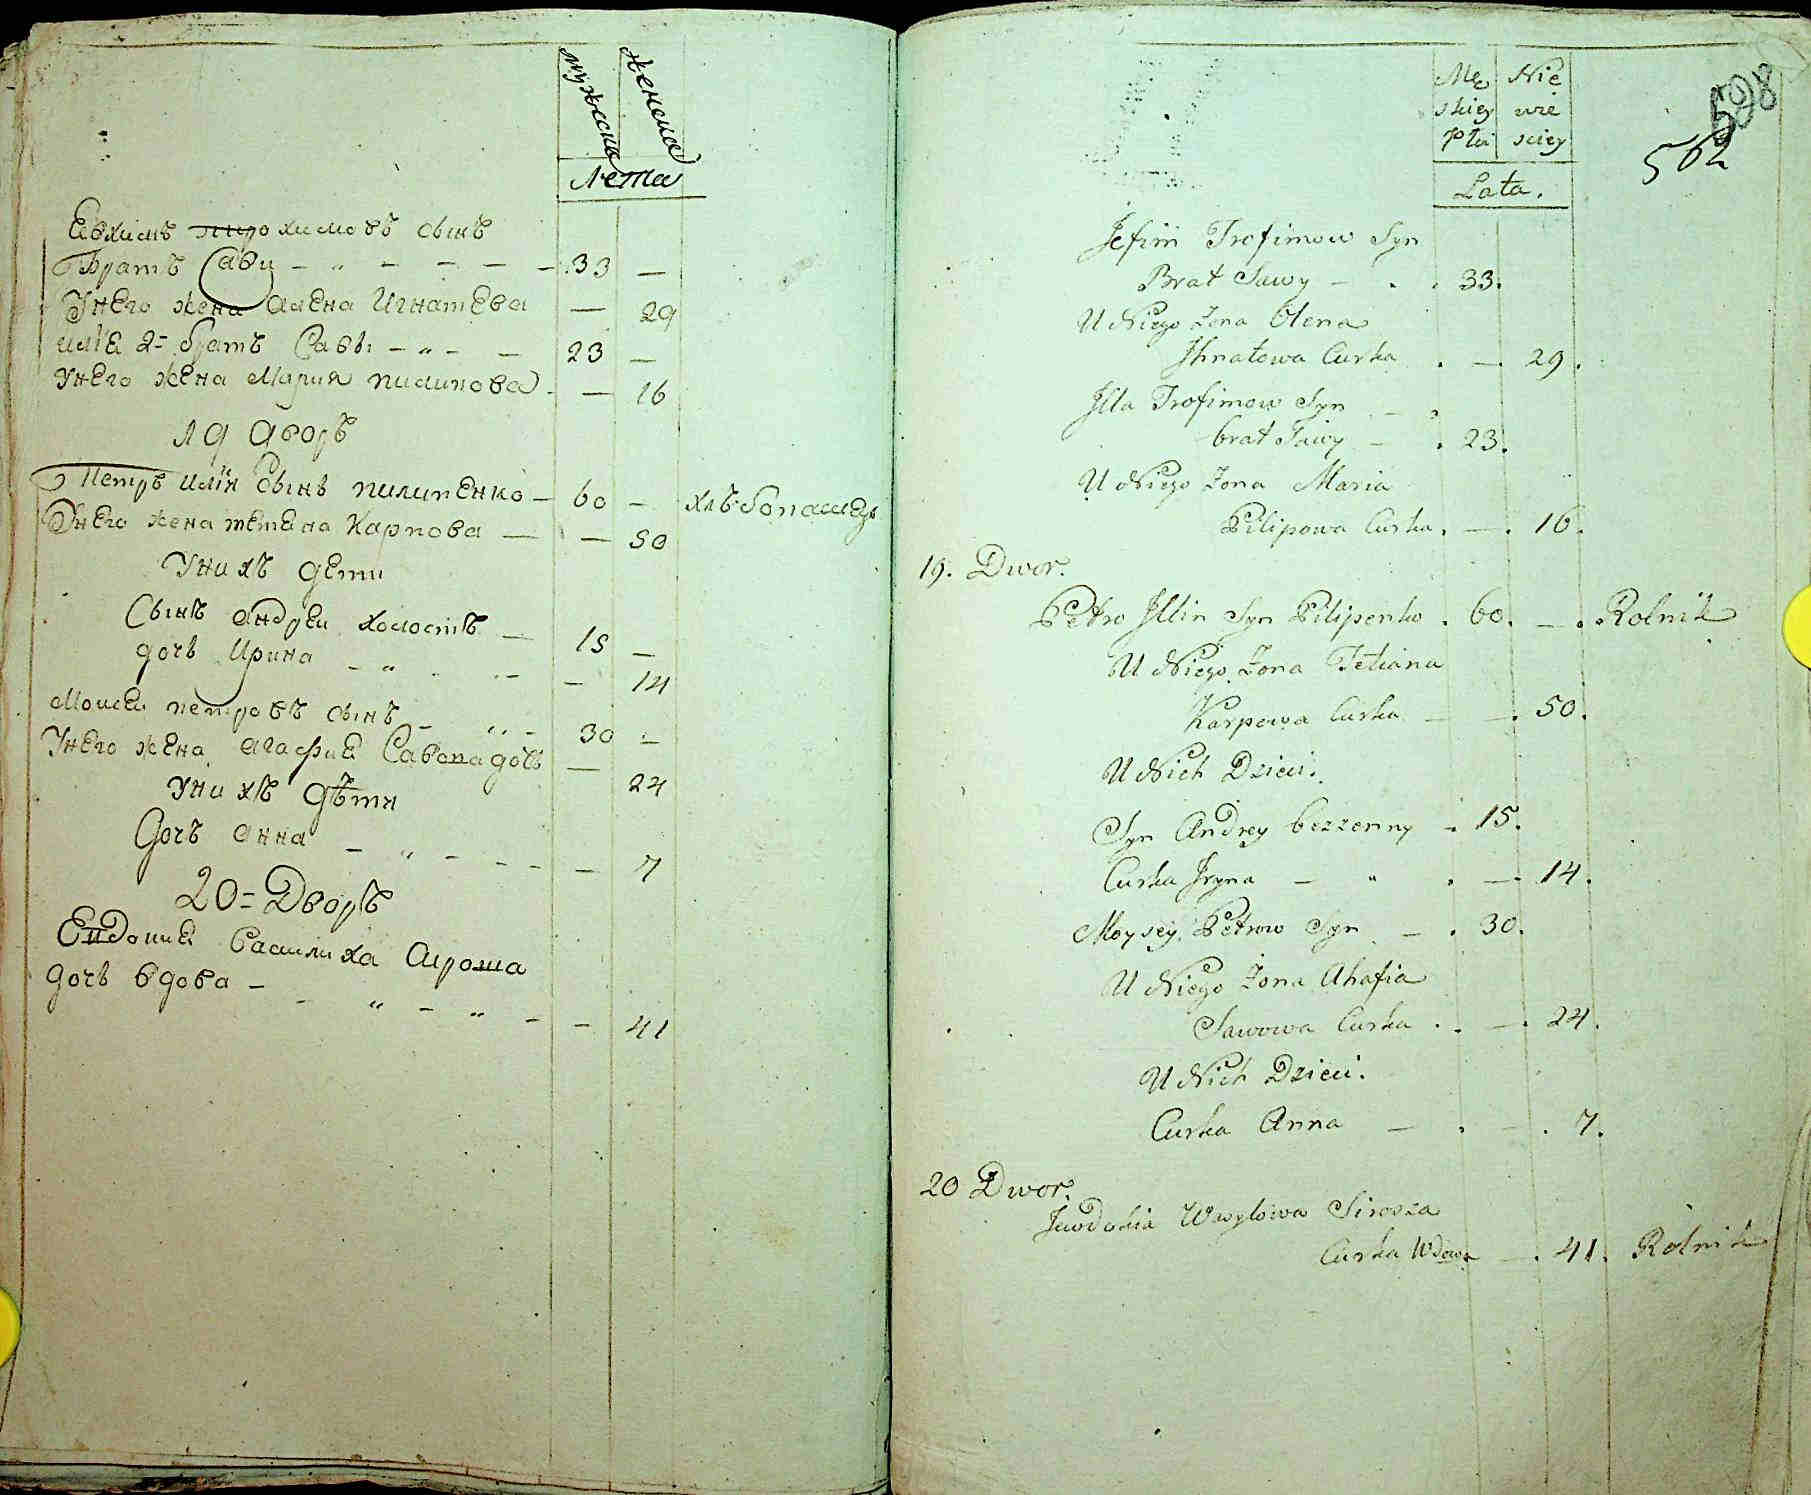 мужеска
женска
Лета
Евхимъ трохимовъ сынъ
братъ Сави 33 —
У него жена Алена Игнатева — 29
илїа 2 = братъ Савы 23 —
У него жена Мария пилипова — 16
19 дворъ
Петръ илїн Сынъ пилипенко 60 — хлѣбопашецъ
У него жена тетена Карпова — 50
У нихъ дети
Сынъ андреи холостъ 15 —
дочъ Ирина — 14
Моисеи петровъ сынъ 30 —
У него жена агафия Савова дочъ — 24
У нихъ дѣти
Дочъ анна — 7
20 = Дворъ
Евдокия Василиха Сироша
дочъ вдова — 41
598
562
Mę Nie
skiey wie
Płci sciey
Lata.
Jefim Trofimow Syn
Brat Sawy — 33.
U Niego Żona Olena
Jhnatowa Curka — 29.
Jlla Trofimow Syn
brat Sawy — 23.
U Niego Żona Maria
Pilipowa Curka — 16.
19. Dwor.
Petro Jllin Syn Pilipenko 60. — Rolnik
U Niego Żona Tetiana
Karpowa Curka — 50.
U Nich Dzieci.
Syn Andrey bezzenny 15.
Curka Jryna — 14.
Moysey Petrow Syn — 30.
U Niego Żona Ahafia
Sawowa Curka — 24.
U Nich Dzieci.
Curka Anna — 7.
20 Dwor.
Jewdokia Wasylowa Sirosza
Curka Wdowa — 41. Rolnik